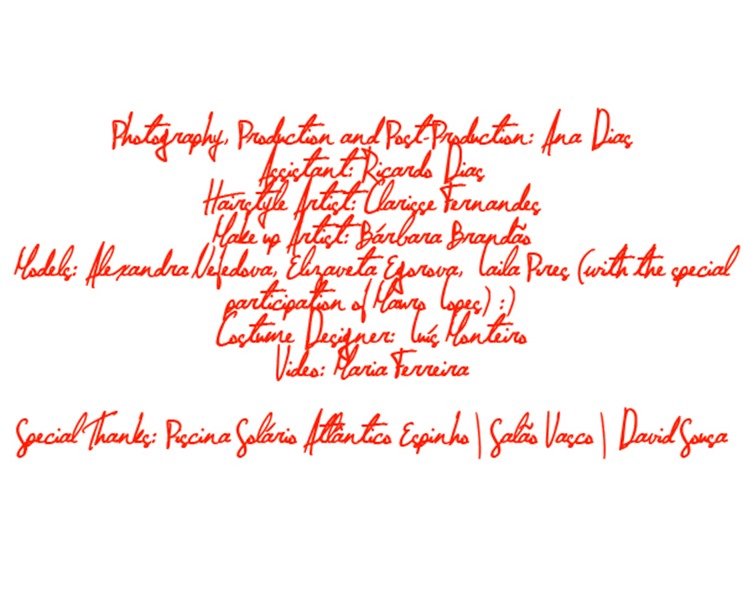 Photography, Production and Post-Production: Ana Dias
Assistant: Ricardo Dias
Hairstyle Artist: Clarisse Fernandes
Make up Artist: Bárbara Brandão
Models: Alexandra Nefedova, Elizaveta Egorova, Laila Pires (with the special
participation of Mauro Lopes) :)
Costume Designer: Luís Monteiro
Video: Maria Ferreira
Special Thanks: Piscina Solário Atlântico Espinho | Salão Vasco | David Sousa